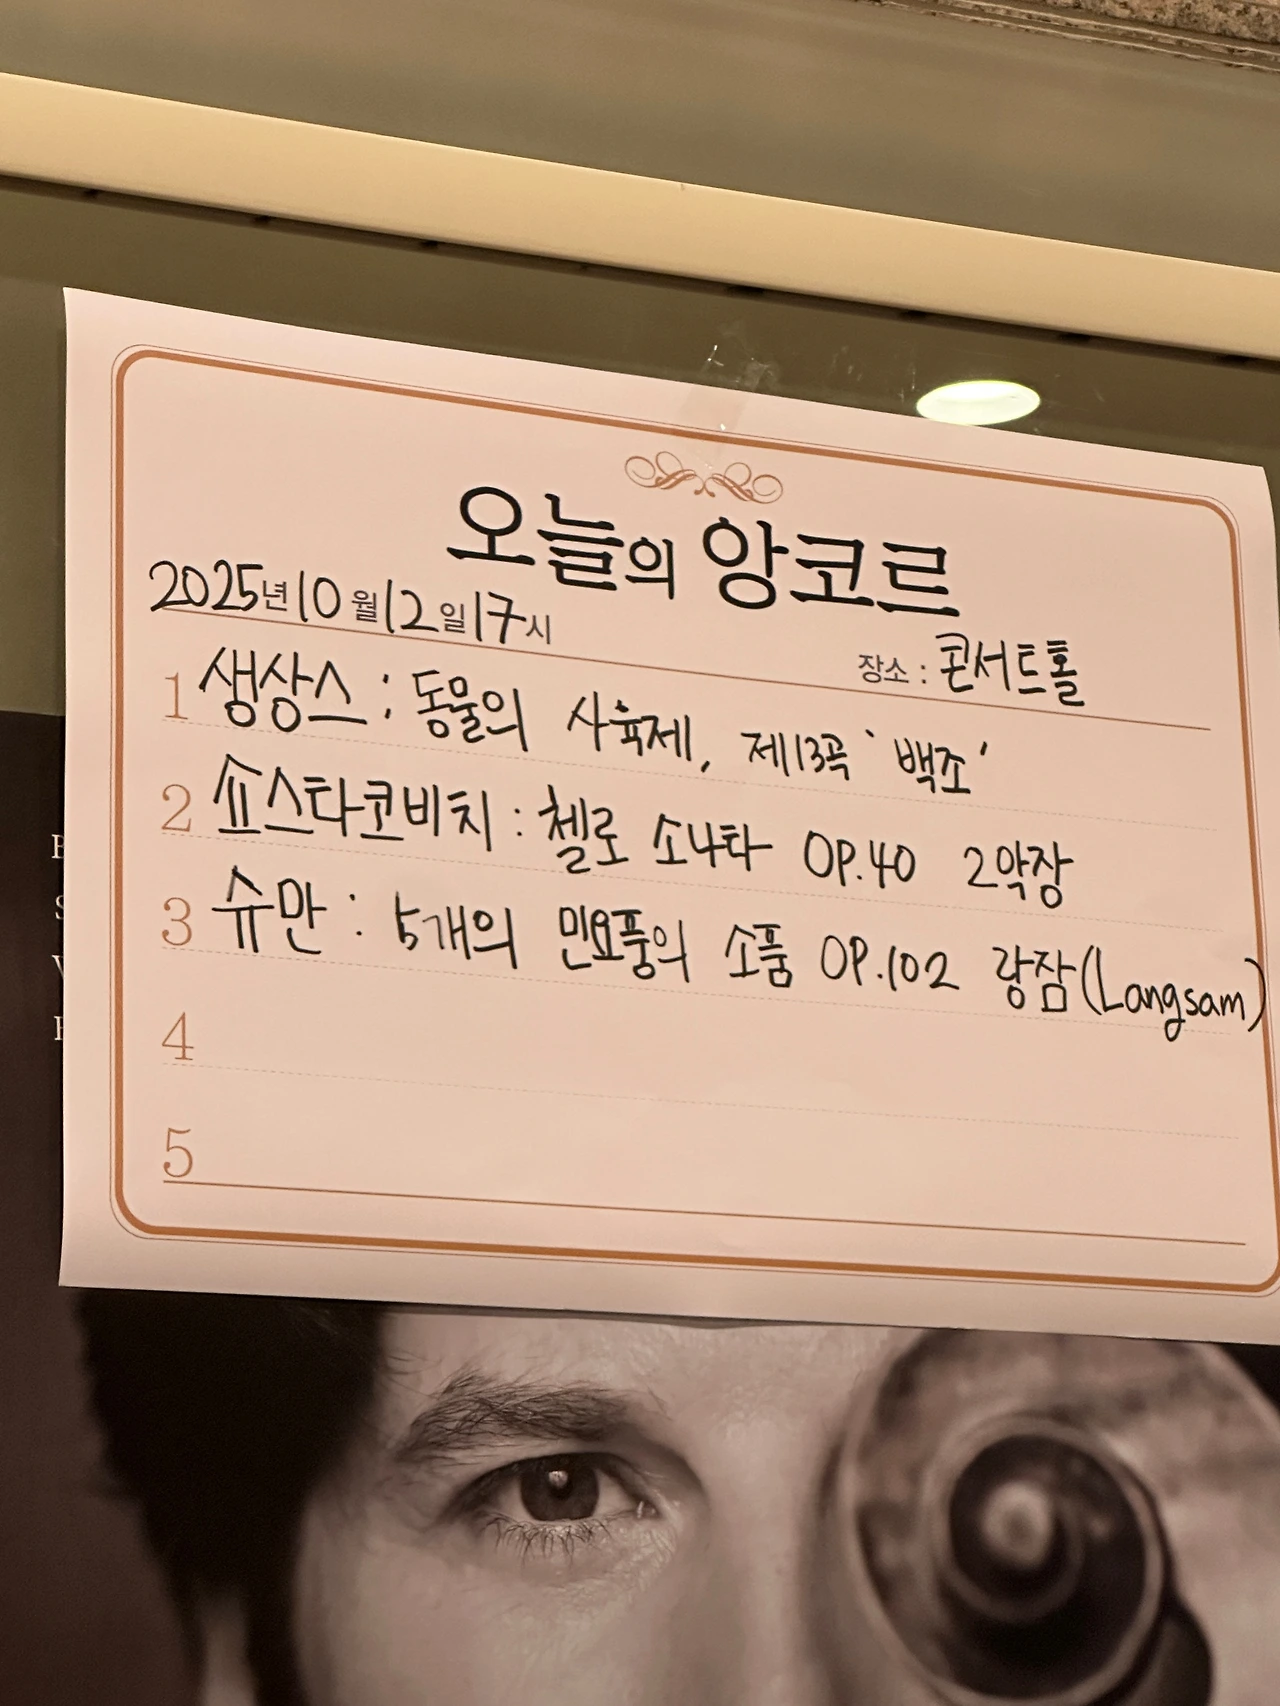 오늘의 앙코르
2025년 10월 12일 17시
장소 : 콘서트홀
1 생상스 : 동물의 사육제, 제13곡 '백조'
2 쇼스타코비치 : 첼로 소나타 OP.40 2악장
3 슈만 : 5개의 민요풍의 소품 OP.102 랑잠(Langsam)
4
5